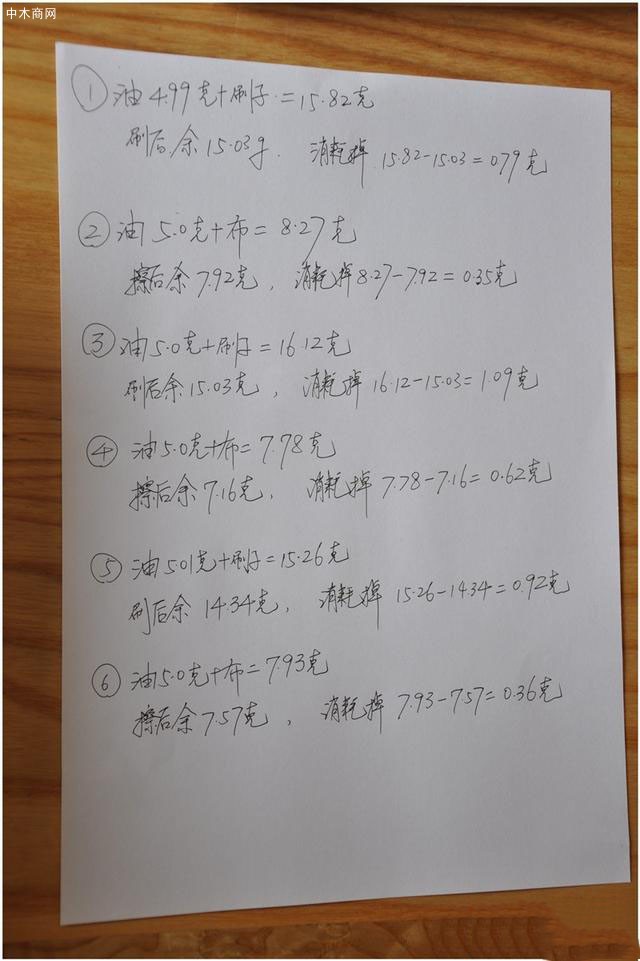 中木商网
① 油4.99克+刷子=15.82克
刷后余15.03g. 消耗掉 15.82-15.03=0.79克
② 油5.0克+布=8.27克
擦后余7.92克，消耗掉8.27-7.92=0.35克
③ 油5.0克+刷子=16.12克
刷后余15.03克，消耗掉16.12-15.03=1.09克
④ 油5.0克+布=7.78克
擦后余7.16克，消耗掉7.78-7.16=0.62克
⑤ 油5.01克+刷子=15.26克
刷后余14.34克，消耗掉15.26-14.34=0.92克
⑥ 油5.0克+布=7.93克
擦后余7.57克，消耗掉7.93-7.57=0.36克